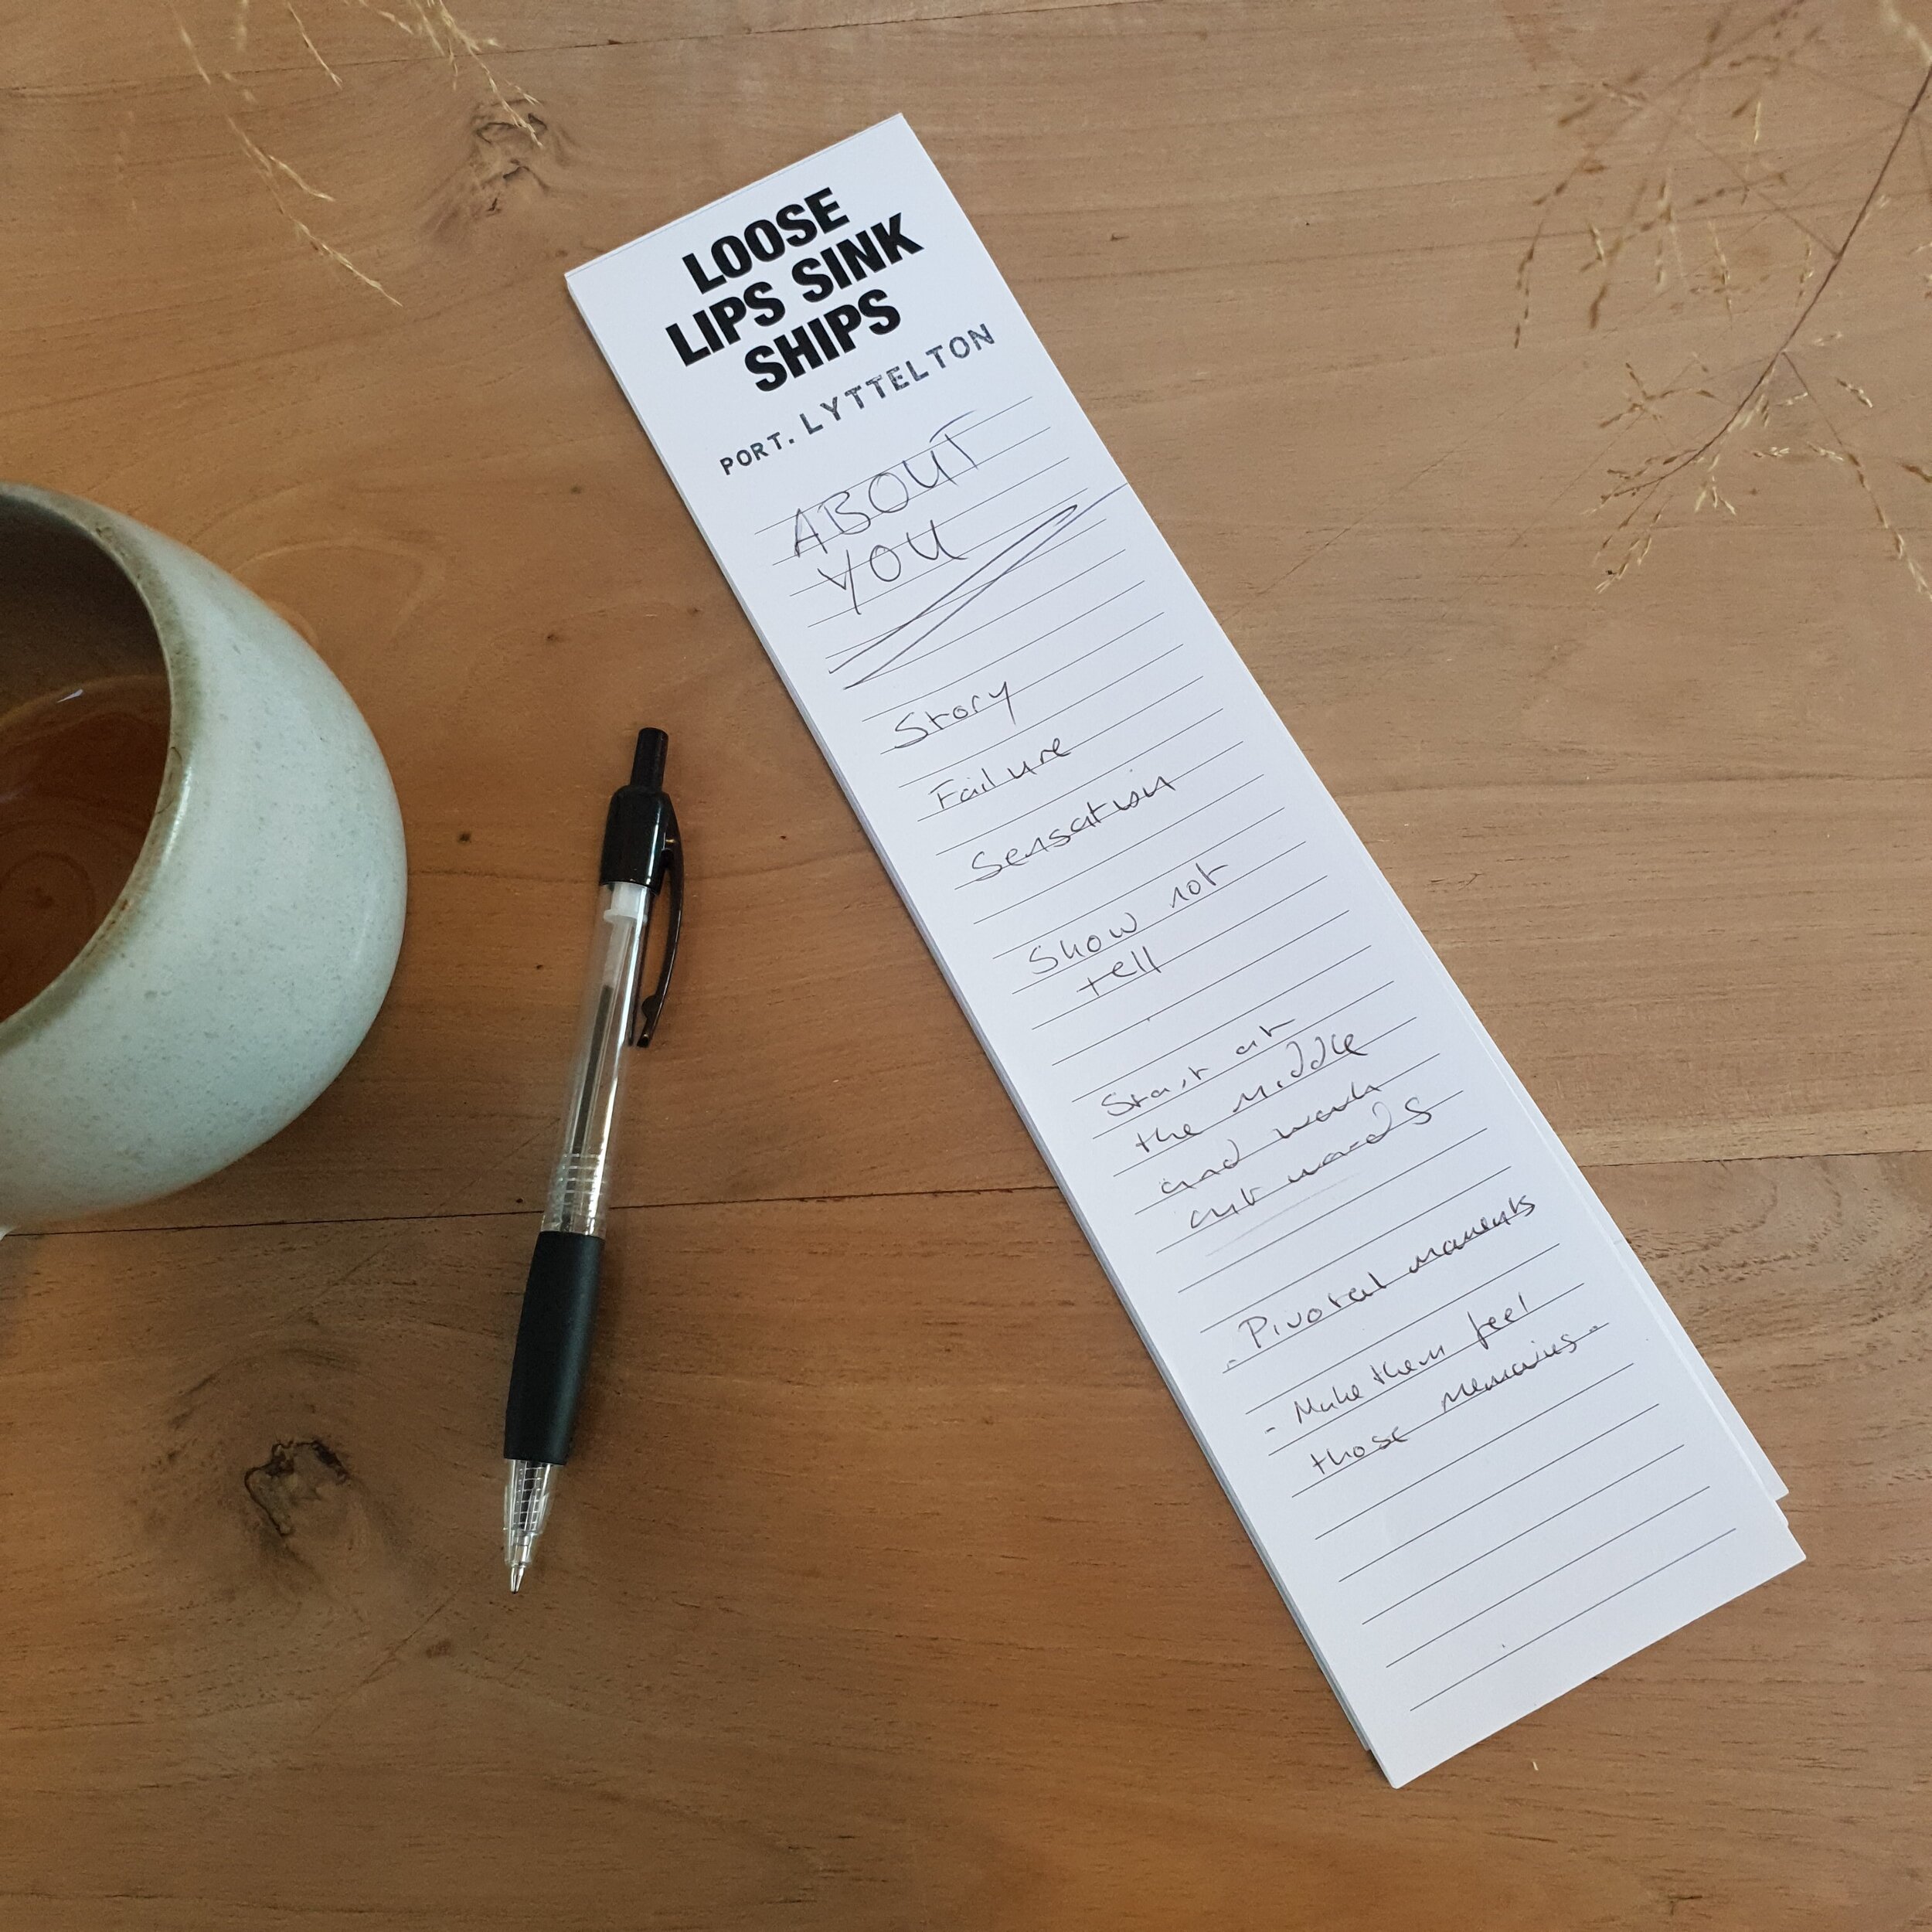 LOOSE
LIPS SINK
SHIPS
PORT. LYTTELTON
ABOUT
YOU
Story
Failure
Sensation
Show not
tell
Start at
the middle
and work
outwards
- Pivotal moments
- Make them feel
those memories.